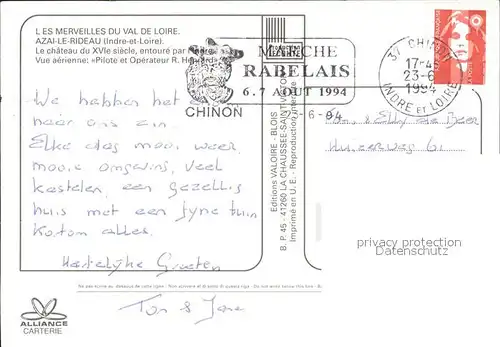 L ES MERVEILLES DU VAL DE LOIRE.
AZAI-LE-RIDEAU (Indre-et-Loire).
Le château du XVIe siècle, entouré par l'Indre.
Vue aérienne: «Pilote et Opérateur R. Henrard»
MARCHE
RABELAIS
6.7 AOUT 1994
CHINON
37 CHINON
17-45
23-6
1994
INDRE ET LOIRE
We hebben het
naar ons zin.
Elke dag mooi weer,
mooie omgeving, veel
kastelen, een gezellig
huis met een fijne tuin
Kortom alles.
Hartelijke Groeten
Ton &
22-6-94
Fam. de Beer
Editions VALOIRE - BLOIS
B. P. 45 - 41260 LA CHAUSSEE-SAINT-VICTOR
Imprimé en U. E. - Reproduction interdite
privacy protection
watermark
Ne pas écrire au-dessous de cette ligne
ALLIANCE
CARTERIE